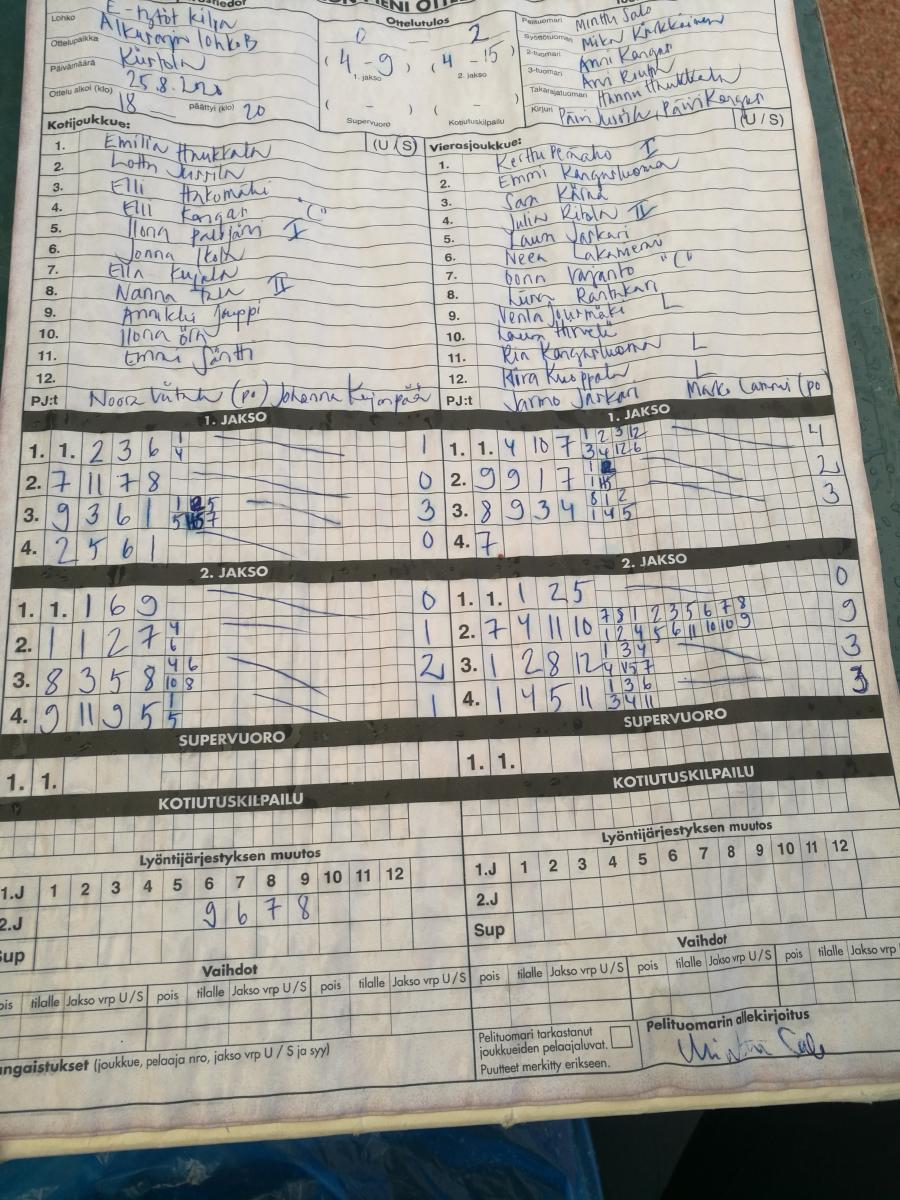 Lohko E-tytöt kilpa
Alkusarja lohko B
Ottelupaikka Kurtola
Päivämäärä 25.8.2020
Ottelu alkoi (klo) 18 päättyi (klo) 20
Ottelutulos
0 - 2
(4 - 9) (4 - 15)
1. jakso 2. jakso
( - ) ( - )
Supervuoro Kotiutuskilpailu
Pelituomari Minttu Salo
Syöttötuomari Mika
2-tuomari Anni Kangas
3-tuomari Arvi
Takarajatuomari Hannu Haukkala
Kirjuri Päivi Päivi Kangas
Kotijoukkue: (U / S)
1. Emilia Haukkala
2. Lotta Jussila
3. Elli Hakomäki
4. Elli Kangas "C"
5. Ilona I
6. Jonna Ikola
7. Ella Kujala
8. Nanna II
9. Annikki Jauppi
10. Ilona
11. Emmi Säntti
12.
PJ:t Noora (po) Johanna Kejonpää
Vierasjoukkue: (U / S)
1. Kerttu Pernaho I
2. Emmi Kangasluoma
3. Sara
4. Julia Ritola II
5. Laura Jaskari
6. Neea Lakaniemi
7. Oona Varjanto "C"
8. Rantakari
9. Venla L
10. Laura Hirvelä
11. Ria Kangasluoma L
12. Kiira Kuoppala L
PJ:t Jarmo Jaskari Marko Lammi (po)
1. JAKSO
1. 1. 2 3 6 1 4 1
2. 7 11 7 8 0
3. 9 3 6 1 3
4. 2 5 6 1 0
1. JAKSO
1. 1. 4 10 7 1 2 3 12 3 4 12 6 4
2. 9 9 1 7 2
3. 8 9 3 4 8 1 2 1 4 5 3
4. 7
2. JAKSO
1. 1. 1 6 9 0
2. 1 1 2 7 4 6 1
3. 8 3 5 8 4 6 10 8 2
4. 9 11 9 5 1 5 1
2. JAKSO
1. 1. 1 2 5 0
2. 7 4 11 10 7 8 1 2 3 5 6 7 8 1 2 4 5 6 11 10 10 9 9
3. 1 2 8 12 1 3 4 4 5 7 3
4. 1 4 5 11 1 3 6 3 4 11 3
SUPERVUORO
1. 1.
SUPERVUORO
1. 1.
KOTIUTUSKILPAILU
KOTIUTUSKILPAILU
Lyöntijärjestyksen muutos
1.J 1 2 3 4 5 6 7 8 9 10 11 12
2.J 9 6 7 8
Sup
Lyöntijärjestyksen muutos
1.J 1 2 3 4 5 6 7 8 9 10 11 12
2.J
Sup
Vaihdot
pois tilalle Jakso vrp U / S pois tilalle Jakso vrp U / S pois tilalle Jakso vrp U / S
Vaihdot
pois tilalle Jakso vrp U / S pois tilalle Jakso vrp U / S pois tilalle Jakso vrp
ngaistukset (joukkue, pelaaja nro, jakso vrp U / S ja syy)
Pelituomari tarkastanut
joukkueiden pelaajaluvat.
Puutteet merkitty erikseen.
Pelituomarin allekirjoitus
Minttu Salo